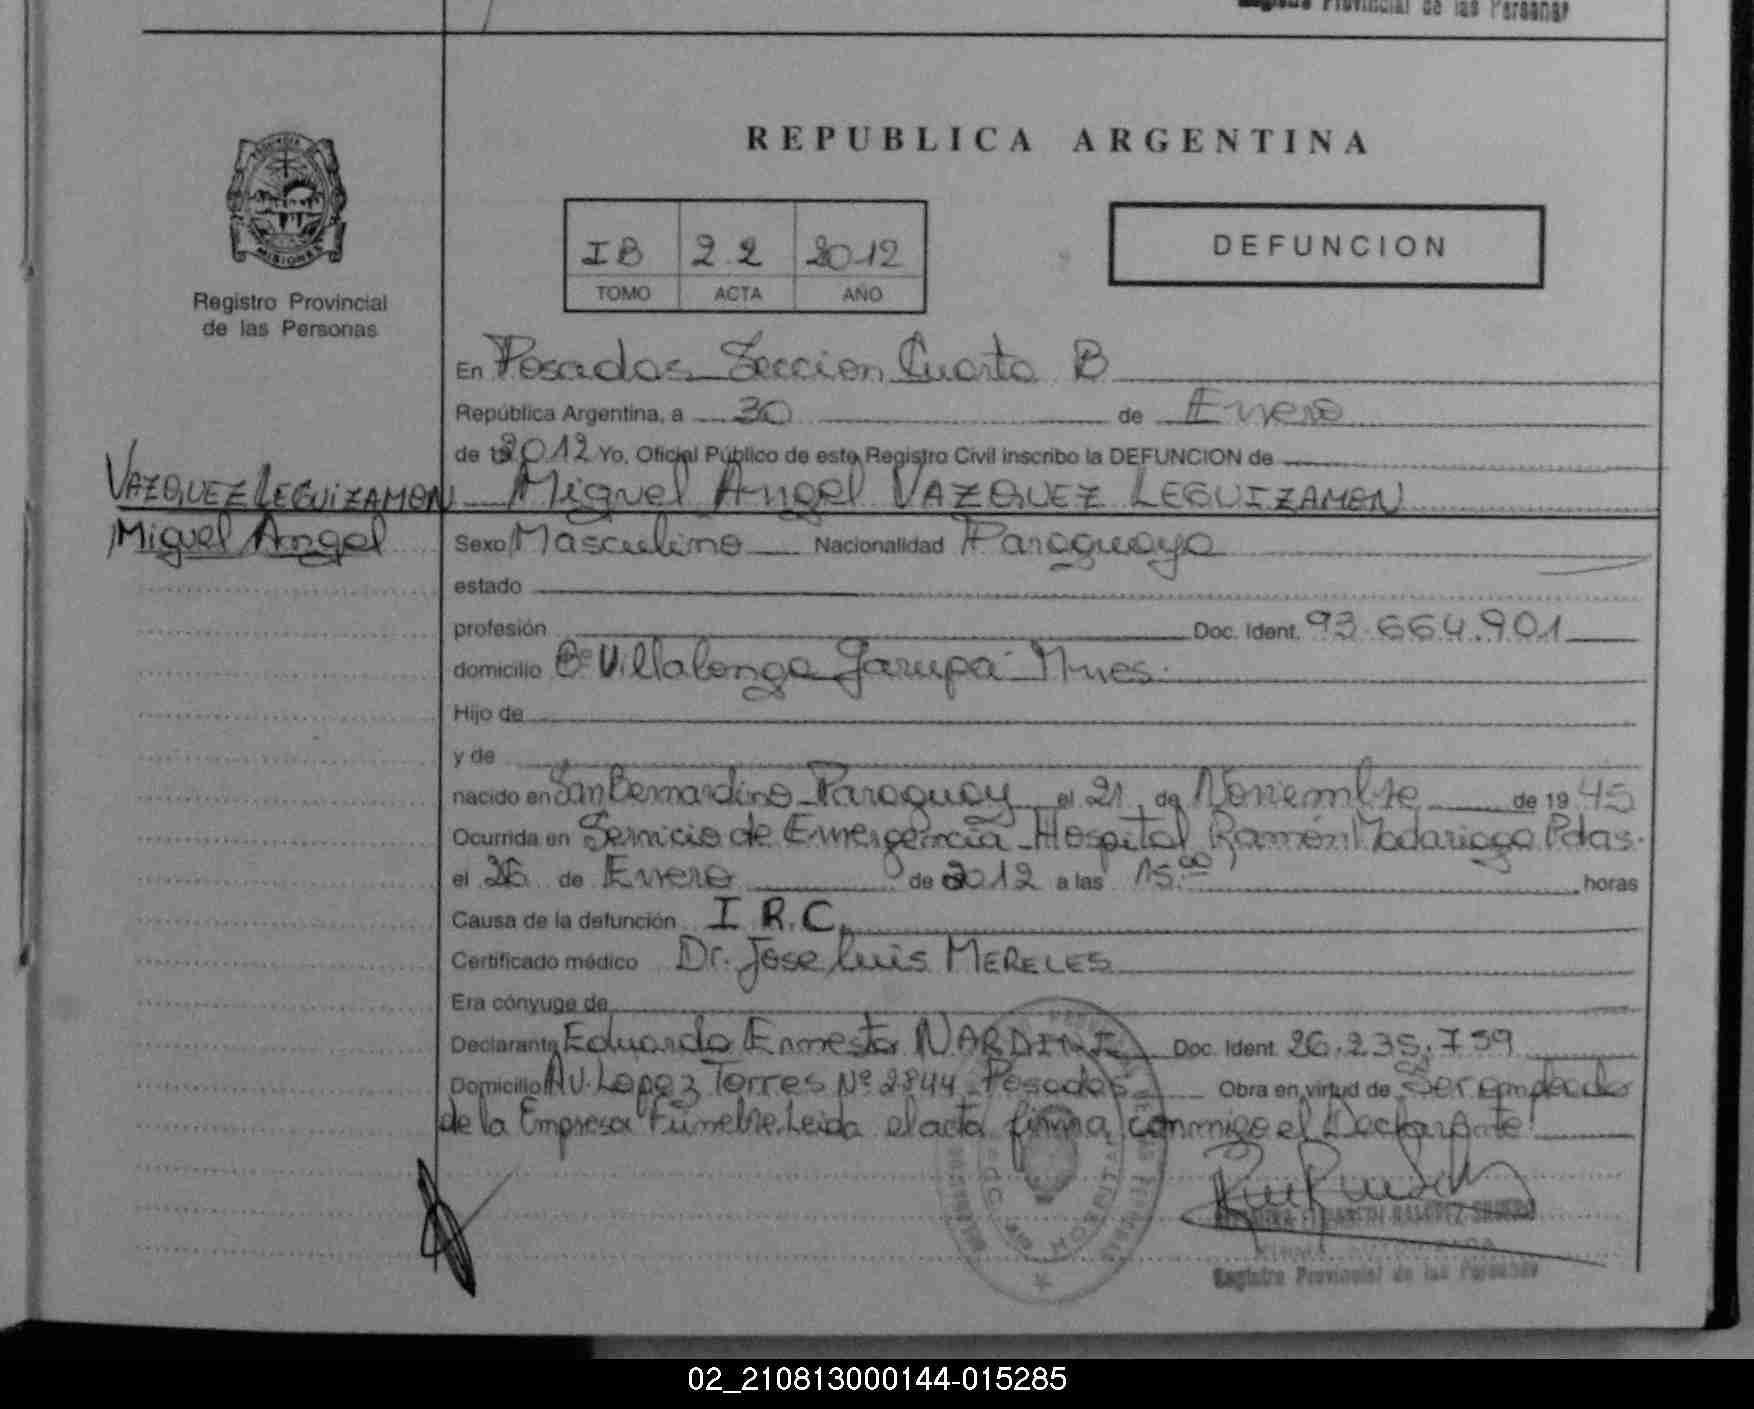 Registro Provincial de las Personas
REPUBLICA ARGENTINA
PROVINCIA
MISIONES
Registro Provincial
de las Personas
IB 22 2012
TOMO ACTA AÑO
DEFUNCION
En Posadas Seccion Cuarta B
República Argentina, a 30 de Enero
de 2012 Yo, Oficial Público de este Registro Civil inscribo la DEFUNCION de
VAZQUEZ LEGUIZAMON
Miguel Angel
Miguel Angel VAZQUEZ LEGUIZAMON
Sexo Masculino Nacionalidad Paraguaya
estado
profesión Doc. Ident. 93.664.901
domicilio Bº Villalonga Garupá Mnes.
Hijo de
y de
nacido en San Bernardino Paraguay el 21 de Noviembre de 1945
Ocurrida en Servicio de Emergencia Hospital Ramón Madariaga Pdas.
el 26 de Enero de 2012 a las 15:00 horas
Causa de la defunción I.R.C.
Certificado médico Dr. Jose Luis MERELES
Era cónyuge de
Declarante Eduardo Ernesto NARDINI Doc. Ident. 26.235.759
Domicilio AV. Lopez Torres Nº 2844 Posadas Obra en virtud de Ser empleado
de la Empresa Fúnebre. Leida el acta firma conmigo el Declarante
Registro Provincial de las Personas
02_210813000144-015285